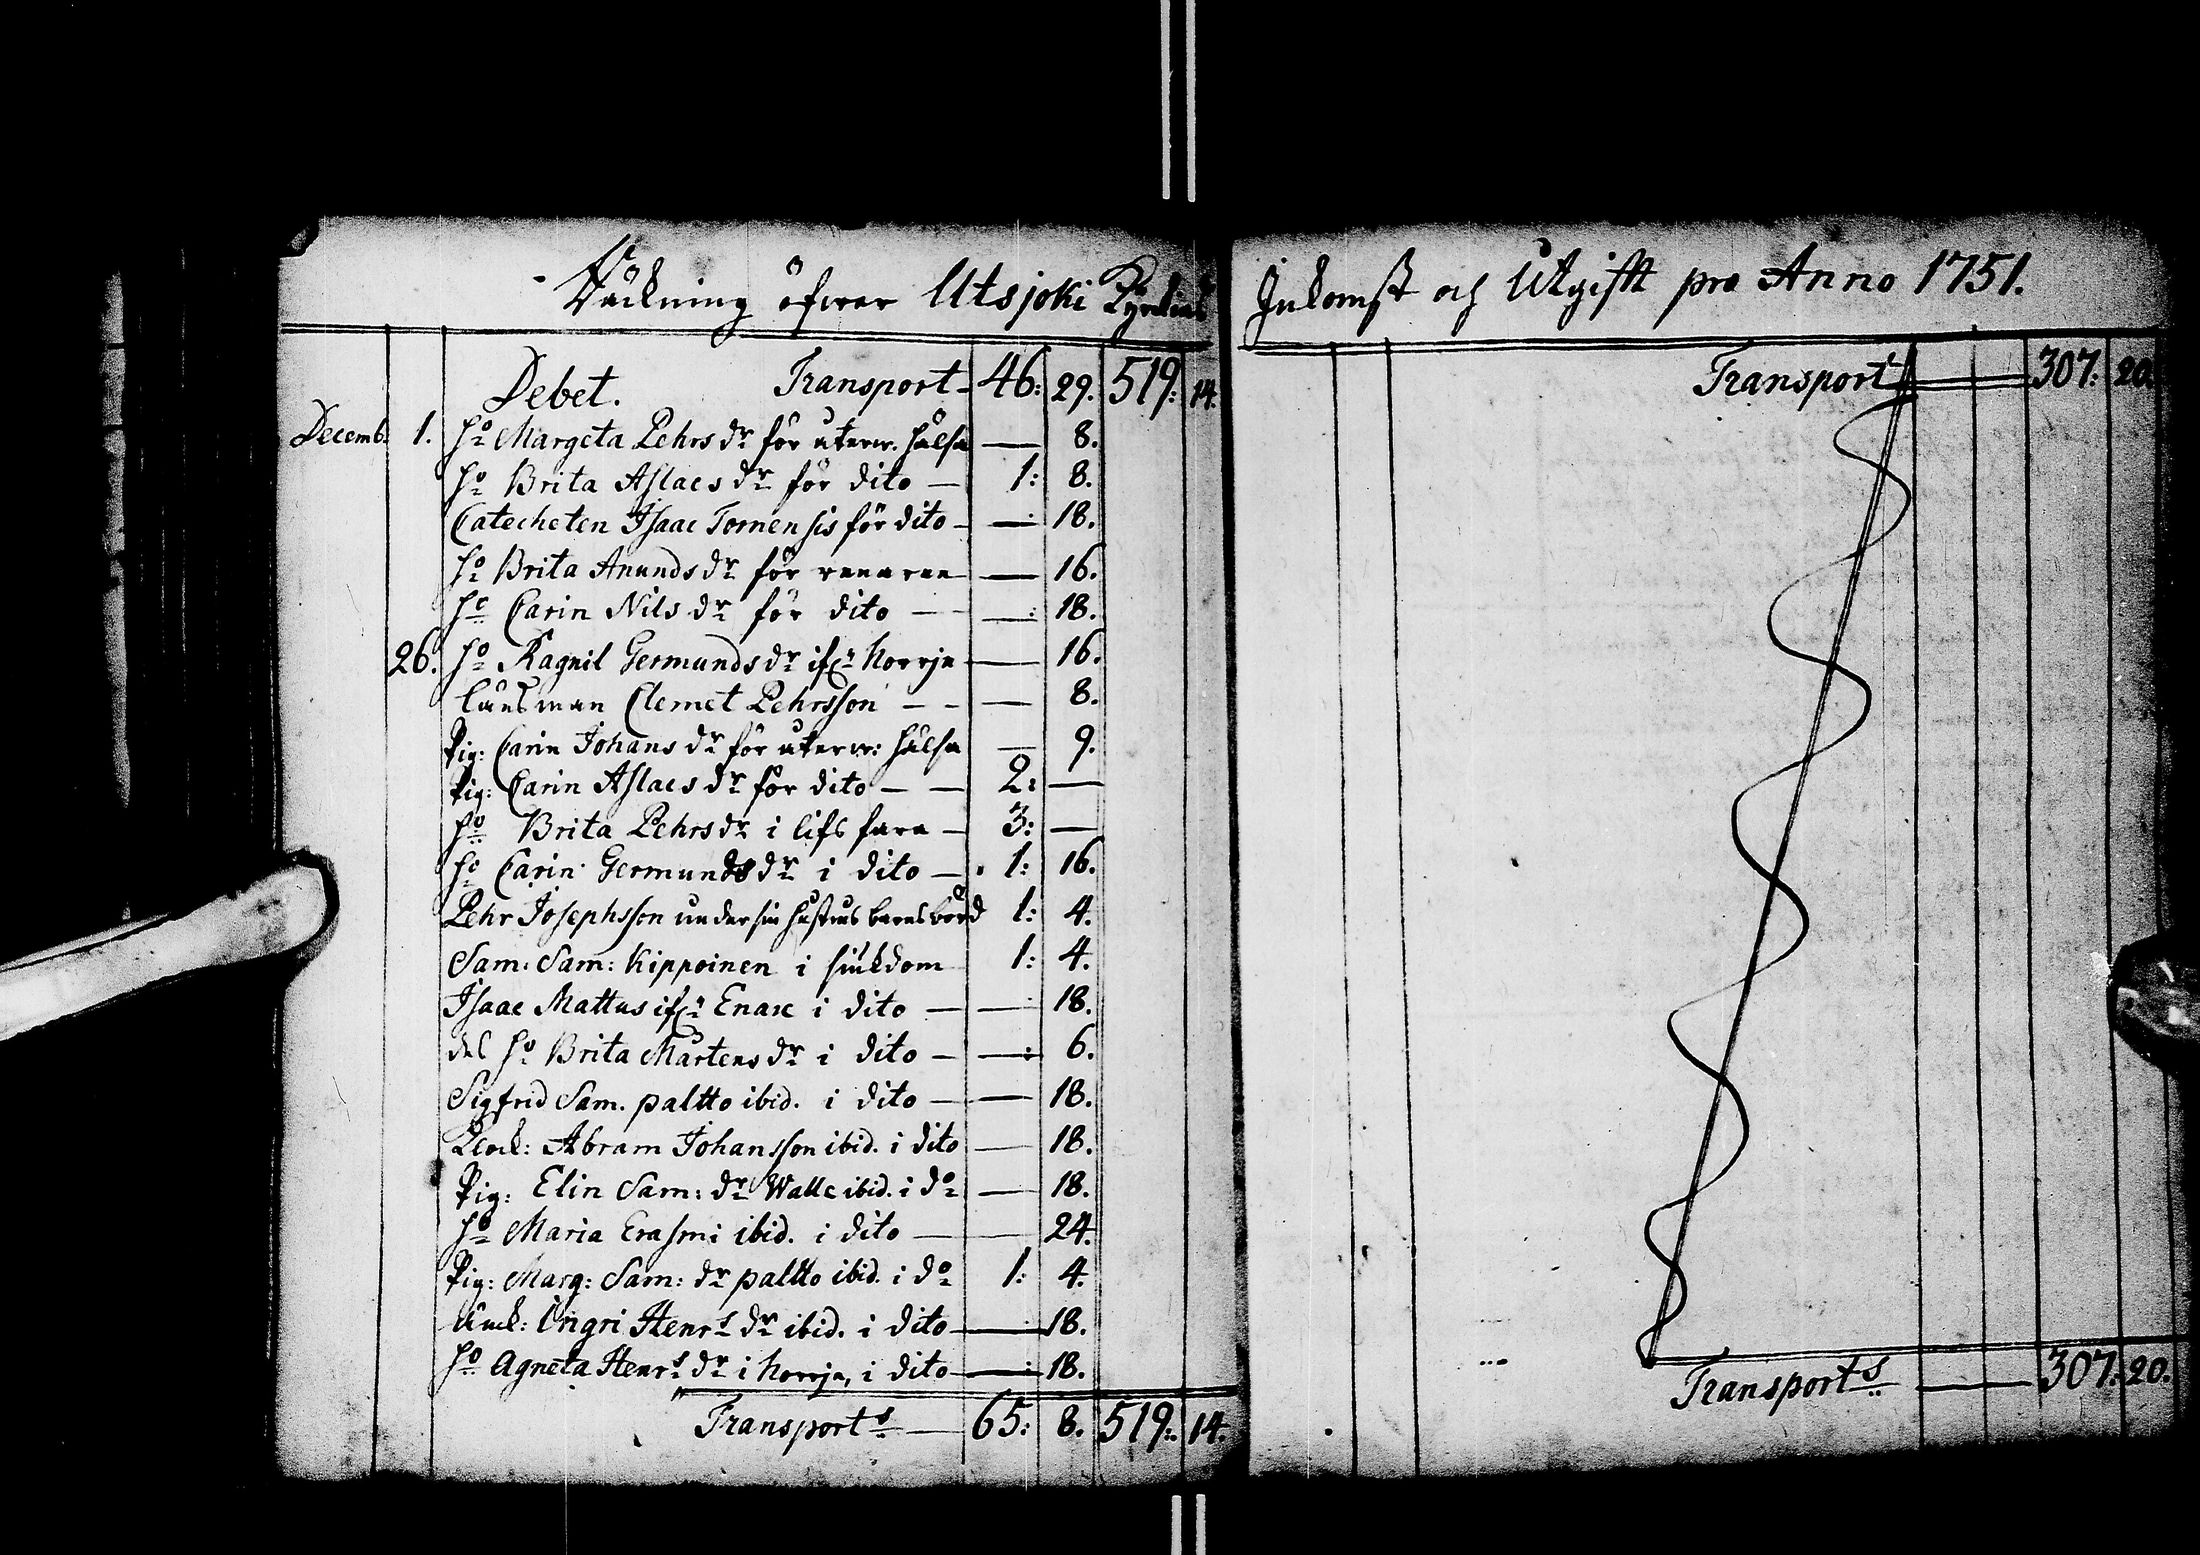 Räckning öfwer Utsjoki Kyrckias
Debet. Transport - 46: 29. 519: 14.
Decemb: 1. Ho Margeta Pehrs dr för återw. hälsa — 8.
Ho Brita Aslacs dr för dito — 1: 8.
Catecheten Isaac Tornensis för dito — 18.
Ho Brita Anunds dr för — 16.
Ho Carin Nils dr för dito — 18.
26. Ho Ragnil Germunds dr ifrn Norrje — 16.
Länsman Clemet Pehrsson — 8.
Pig: Carin Johans dr för återw: hälsa — 9.
Pig: Carin Aslacs dr för dito — 2: —
Ho Brita Pehrs dr i lifs fara — 3: —
Ho Carin Germunds dr i dito — 1: 16.
Pehr Josephsson under sin hustrus barnsbörd 1: 4.
Sam: Sam: Kippoinen i siukdom 1: 4.
Isaac Mattus ifrn Enare i dito — 18.
des Ho Brita Mårtens dr i dito — 6.
Sigfrid Sam. paltto ibid. i dito — 18.
Klock: Abram Johansson ibid. i dito — 18.
Pig: Elin Sam: dr Walle ibid. i do — 18.
Ho Maria Erasmi ibid. i dito — 24.
Pig: Marg: Sam: dr paltto ibid. i do 1: 4.
Änck: Ingri Henrs dr ibid. i dito — 18.
Ho Agneta Henrs dr i Norrje, i dito — 18.
Transports — 65: 8. 519: 14.
Inkomst och Utgifft pro Anno 1751.
Transport 307: 20.
Transports — 307: 20.